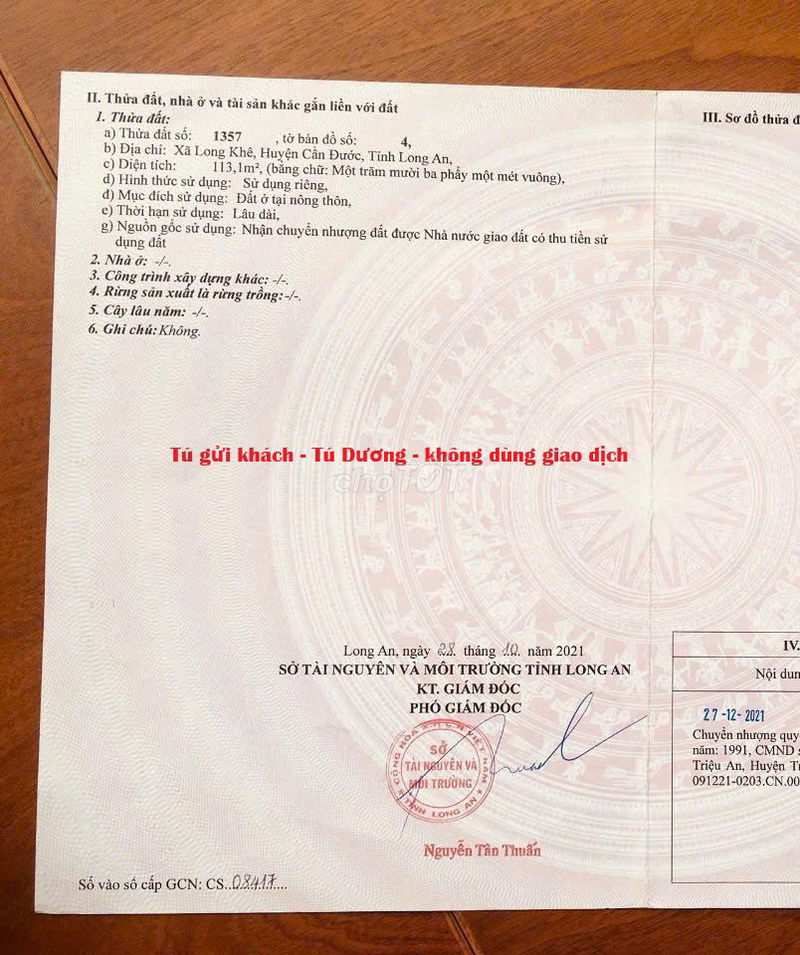 II. Thửa đất, nhà ở và tài sản khác gắn liền với đất
1. Thửa đất:
a) Thửa đất số: 1357 , tờ bản đồ số: 4,
b) Địa chỉ: Xã Long Khê, Huyện Cần Đước, Tỉnh Long An,
c) Diện tích: 113,1m², (bằng chữ: Một trăm mười ba phẩy một mét vuông),
d) Hình thức sử dụng: Sử dụng riêng,
đ) Mục đích sử dụng: Đất ở tại nông thôn,
e) Thời hạn sử dụng: Lâu dài,
g) Nguồn gốc sử dụng: Nhận chuyển nhượng đất được Nhà nước giao đất có thu tiền sử
dụng đất
2. Nhà ở: -/-.
3. Công trình xây dựng khác: -/-.
4. Rừng sản xuất là rừng trồng: -/-.
5. Cây lâu năm: -/-.
6. Ghi chú: Không.
III. Sơ đồ thửa đ
Tú gửi khách - Tú Dương - không dùng giao dịch
chợTỐT
Long An, ngày 28 tháng 10 năm 2021
SỞ TÀI NGUYÊN VÀ MÔI TRƯỜNG TỈNH LONG AN
KT. GIÁM ĐỐC
PHÓ GIÁM ĐỐC
CỘNG HÒA X.H.C.N VIỆT NAM
SỞ
TÀI NGUYÊN VÀ
MÔI TRƯỜNG
TỈNH LONG AN
Nguyễn Tân Thuấn
Số vào sổ cấp GCN: CS..08417....
IV.
Nội dun
27-12-2021
Chuyển nhượng quy
năm: 1991, CMND s
Triệu An, Huyện Tr
091221-0203.CN.00